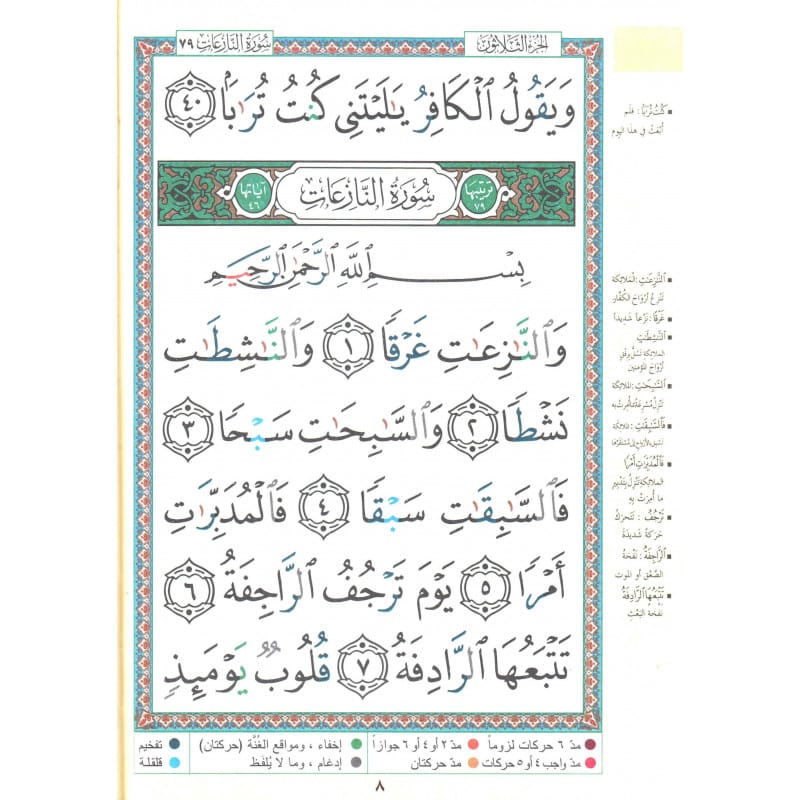 الجزء الثلاثون
سورة النازعات ٧٩
وَيَقُولُ ٱلْكَافِرُ يَٰلَيْتَنِى كُنتُ تُرَٰبَۢا ٤٠
ترتيبها ٧٩ سُورَةُ النَّازِعَاتِ آياتها ٤٦
بِسْمِ ٱللَّهِ ٱلرَّحْمَٰنِ ٱلرَّحِيمِ
وَٱلنَّٰزِعَٰتِ غَرْقًا ١ وَٱلنَّٰشِطَٰتِ
نَشْطًا ٢ وَٱلسَّٰبِحَٰتِ سَبْحًا ٣
فَٱلسَّٰبِقَٰتِ سَبْقًا ٤ فَٱلْمُدَبِّرَٰتِ
أَمْرًا ٥ يَوْمَ تَرْجُفُ ٱلرَّاجِفَةُ ٦
تَتْبَعُهَا ٱلرَّادِفَةُ ٧ قُلُوبٌ يَوْمَئِذٍ
كُنتُ تُرَابًا : فلم
أُبعث في هذا اليوم
النَّٰزِعَٰتِ : الملائكة
تنزع أرواح الكفّار
غَرْقًا : نزعاً شديداً
النَّٰشِطَٰتِ
الملائكة تسلّ برفق
أرواح المؤمنين
السَّٰبِحَٰتِ : الملائكة
تنزل مسرعة بما أُمرت به
فَالسَّٰبِقَٰتِ : الملائكة
تسبق بالأرواح إلى مستقرّها
فَالْمُدَبِّرَٰتِ أَمْرًا
الملائكة تنزل بتدبير
ما أُمرت به
تَرْجُفُ : تتحرك
حركة شديدة
الرَّاجِفَةُ : نفخة
الصّعق أو الموت
تَتْبَعُهَا الرَّادِفَةُ
نفخة البعث
مدّ ٦ حركات لزوماً مدّ ٢ أو ٤ أو ٦ جوازاً إخفاء، ومواقع الغُنَّة (حركتان) تفخيم
مدّ واجب ٤ أو ٥ حركات مدّ حركتان إدغام، وما لا يُلفَظ قلقلة
٨